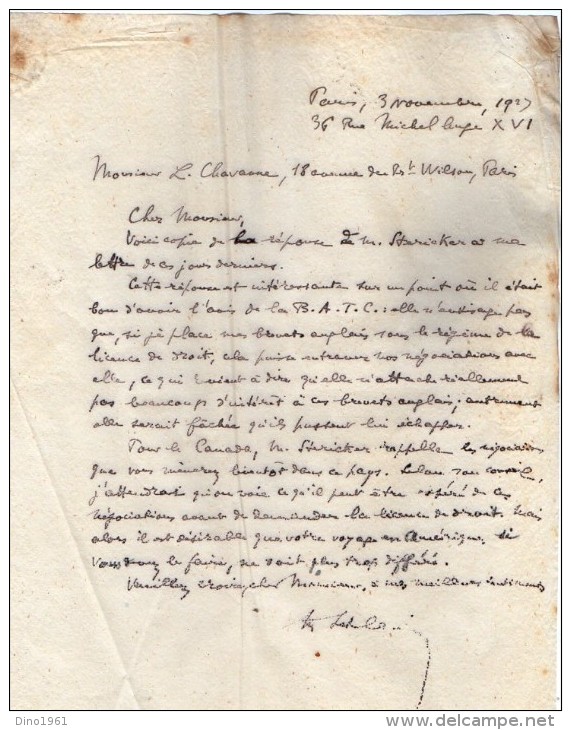 Paris, 3 novembre, 1927
36 Rue Michel Ange XVI
Monsieur L. Chavanne, 18 avenue du Pst Wilson, Paris
Cher Monsieur,
Voici copie de la réponse de M. Stericker à ma
lettre de ces jours derniers.
Cette réponse est intéressante sur un point où il était
bon d'avoir l'avis de la B.A.T.C. : elle n'envisage pas
que, si je place mes brevets anglais sous le régime de la
licence de droit, cela puisse entraver nos négociations avec
elle, ce qui revient à dire qu'elle n'attache réellement
pas beaucoup d'intérêt à ces brevets anglais; autrement
elle serait fâchée qu'ils pussent lui échapper.
Pour le Canada, M. Stericker rappelle les négociations
que vous mènerez bientôt dans ce pays. Selon son conseil,
j'attendrai qu'on voie ce qu'il peut être espéré de ces
négociations avant de demander la licence de droit. Mais
alors il est désirable que votre voyage en Amérique, si
vous devez le faire, ne soit plus trop différé.
Veuillez croire, cher Monsieur, à mes meilleurs sentiments
Dino1961
delcampe.net